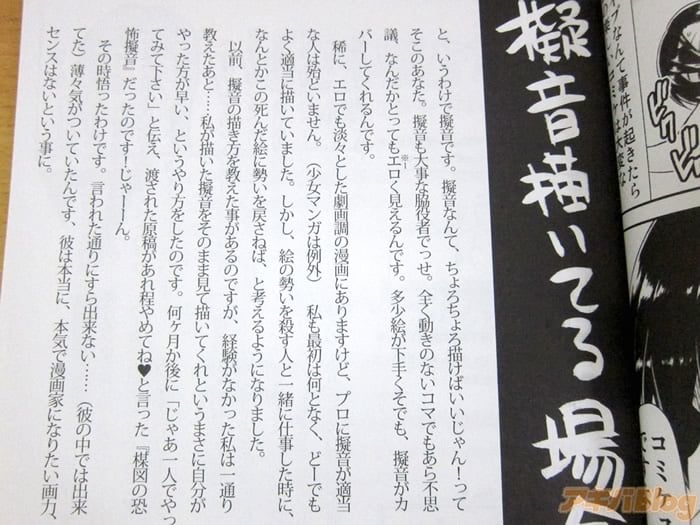 イブなんて事件が起きたら
ドク
擬音描いてる場合
と、いうわけで擬音です。擬音なんて、ちょろちょろ描けばいいじゃん!って
そこのあなた。擬音も大事な脇役者でっせ。全く動きのないコマでもあら不思
議、なんだかとってもエロく見えるんです。多少絵が下手くそでも、擬音がカ
※
バーしてくれるんです。
稀に、エロでも淡々とした劇画調の漫画にありますけど、プロに擬音が適当
な人は殆どいません。(少女マンガは例外) 私も最初は何となく、どーでも
よく適当に描いていました。しかし、絵の勢いを殺す人と一緒に仕事した時に、
なんとかこの死んだ絵に勢いを戻さねば、と考えるようになりました。
以前、擬音の描き方を教えた事があるのですが、経験がなかった私は一通り
教えたあと…私が描いた擬音をそのまま見て描いてくれというまさに自分が
やった方が早い、というやり方をしたのです。何ヶ月か後に「じゃあ一人でやっ
てみて下さい」と伝え、渡された原稿があれ程やめてね♥と言った『楳図の恐
怖擬音』だったのです!じゃーーん。
その時悟ったわけです。言われた通りにすら出来ない……(彼の中では出来
てた)薄々気がついていたんです、彼は本当に、本気で漫画家になりたい画力、
センスはないという事に。
アキバBlog